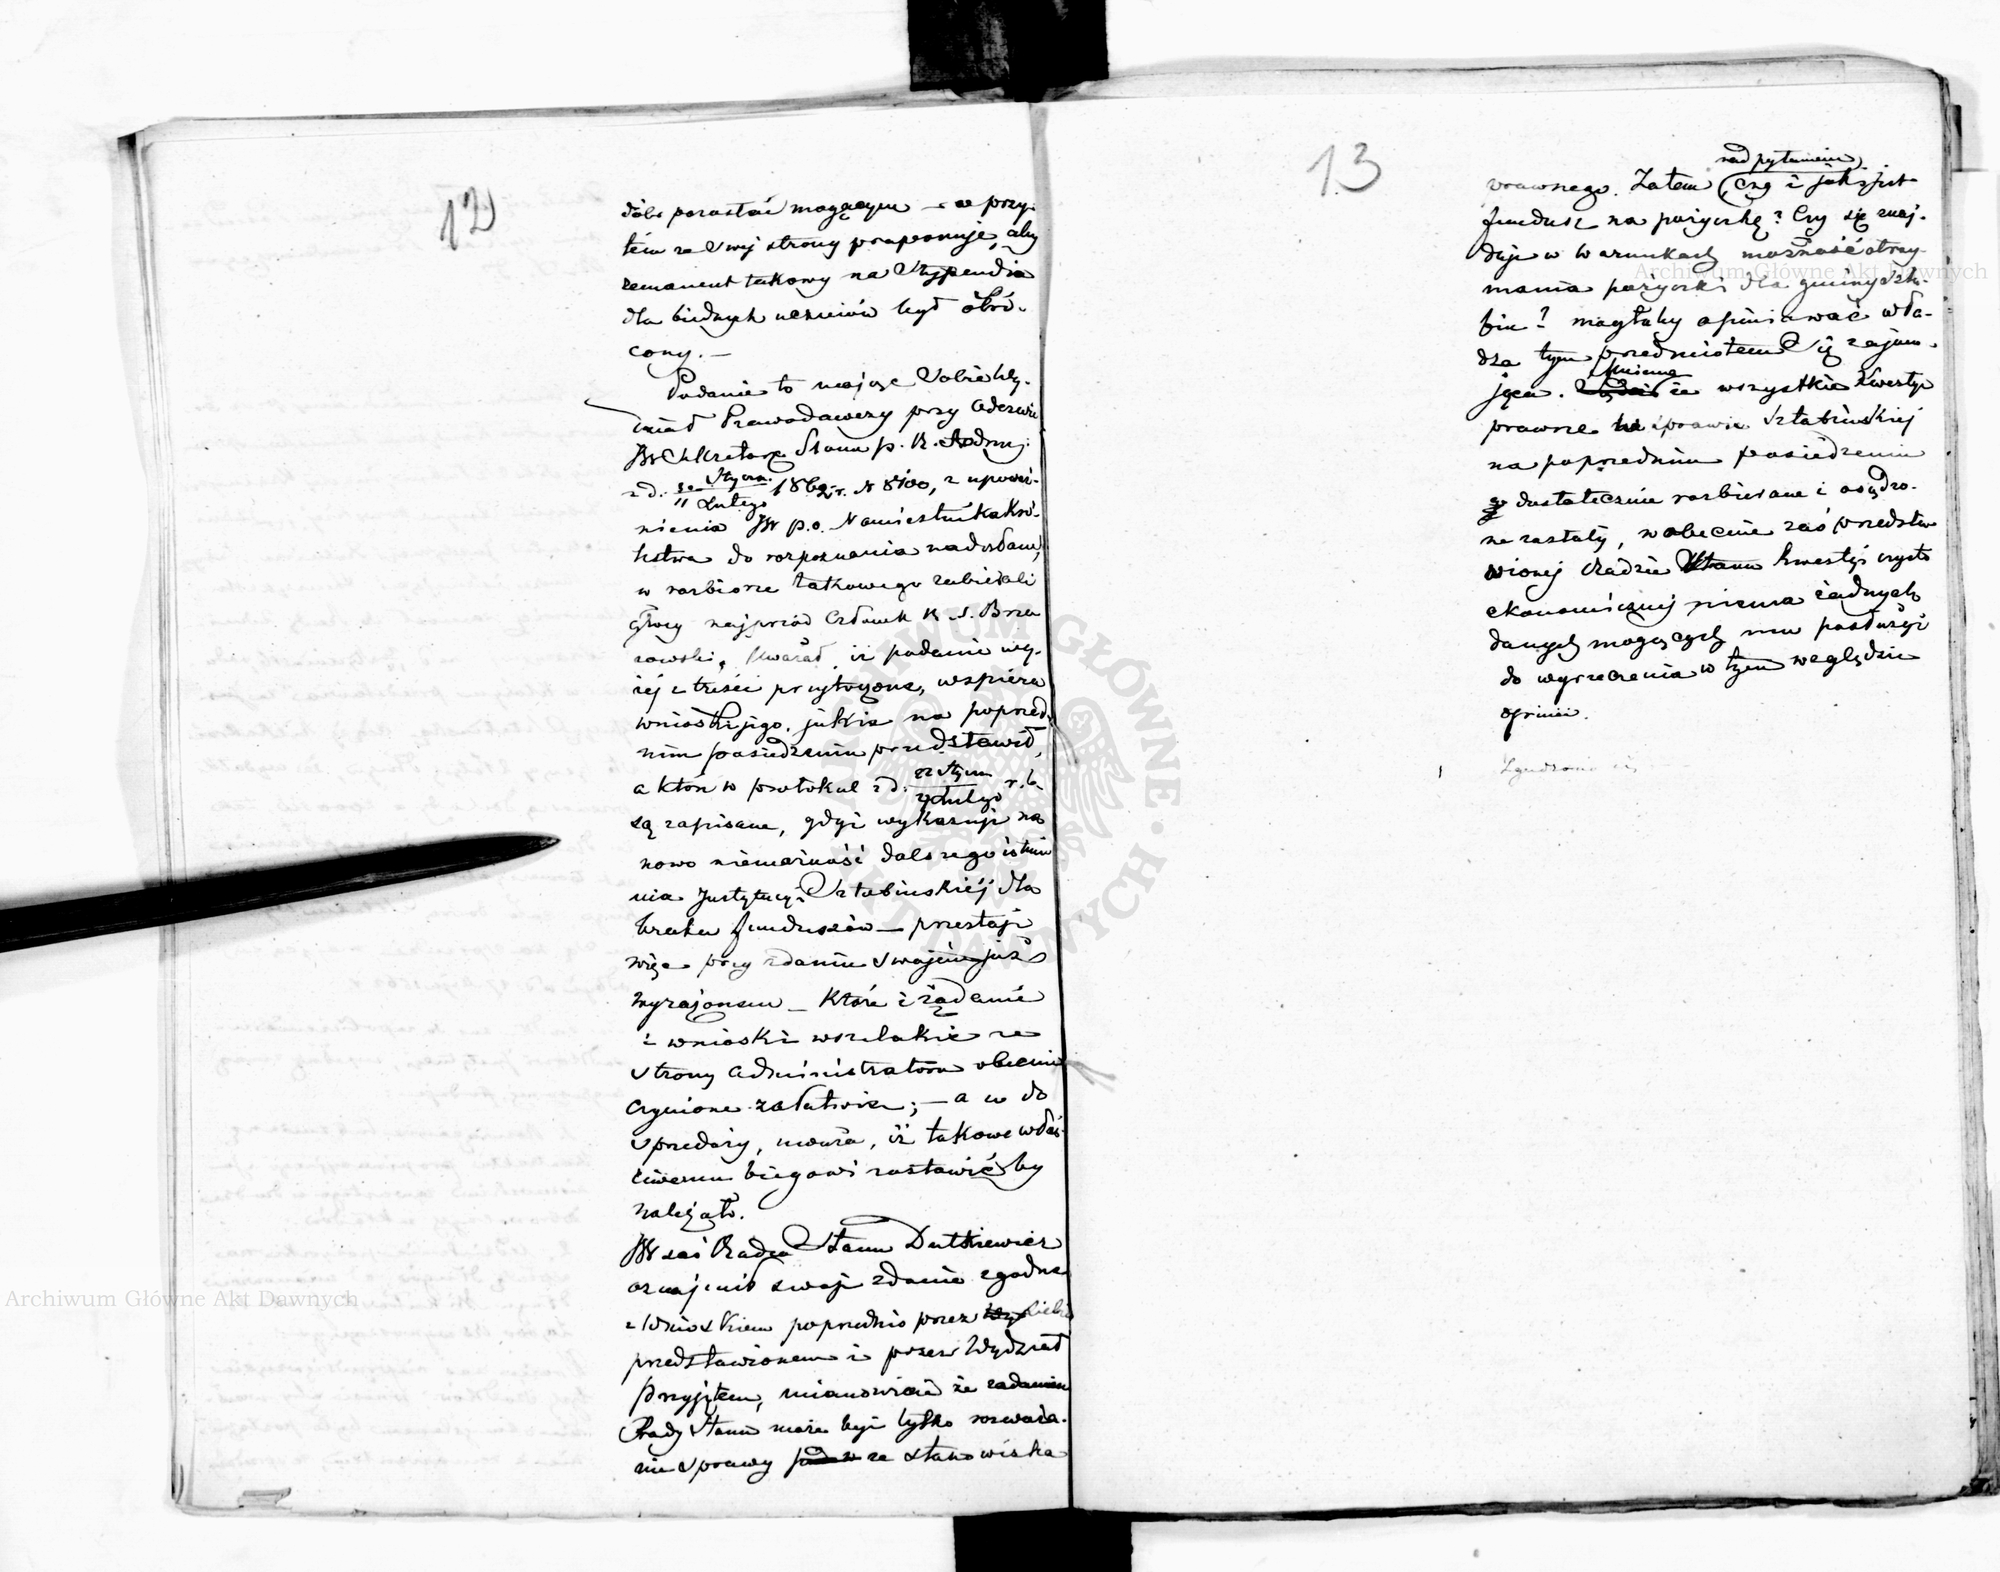 12
dób pozostać mogącym – a przy
tém ze swej strony proponuje, aby
remanent takowy na Stypendia
dla biednych uczniów był obró-
cony. –
Podanie to mając sobie Wy-
dział Prawodawczy przy odezwie
JW Sekretarza Stanu p. R.
z d. 30 Stycz. / 11 Lutego 1862 r. N 8100, z upoważ-
nienia JW p.o. Namiestnika Kró-
lestwa do rozpoznania nadesłane,
w rozbiorze takowego zabierali
głosy najprzód Członek R. S. Brzo
zowski, uważał, iż podanie wy-
żej z treści przytoczone, wspiera
wnioski jego, jakie na poprzed-
nim posiedzeniu przedstawił,
a które w protokul z d. 22 Stycz / 3 Lutego r. b.
są zapisane, gdyż wykazuje na
nowo niemożność dalszego istnie
nia Instytucyi Sztabińskiej dla
braku funduszów – przestaje
więc przy zdaniu swojém już
wyrażonem – które i żądanie
i wnioski wszelakie ze
strony Administratora obecnie
czynione załatwia; – a co do
sprzedaży, uważa, iż takowe właś-
ciwemu biegowi zostawić by
należało.
JW zaś Radca Stanu Dutkiewicz
oznajmił swoje zdanie zgodne
z wnioskiem poprzednio przez siebie
przedstawionem i przez Wydział
przyjętem, mianowicie że zadaniem
Rady Stanu może być tylko rozważa-
nie sprawy ze stanowiska
13
nad pytaniem
prawnego. Zatem czy i jaki jest
fundusz na pożyczkę? Czy się znaj-
duje w warunkach możność otrzy-
mania pożyczki dla gminy Szta-
bin? mogłaby opiniować wła-
dza tym przedmiotem się zajmu-
jąca. Mniema że wszystkie kwestye
prawne w sprawie Sztabińskiej
na poprzedniem posiedzeniu
dostatecznie rozbierane i osądzo-
ne zostały, w obecnie zaś przedsta
wionej Radzie Stanu kwestyi czysto
ekonomicznej niema żadnych
danych mogących mu posłużyć
do wyrzeczenia w tym względzie
opinii.
Zgodzono się
Archiwum Główne Akt Dawnych
Archiwum Główne Akt Dawnych
ARCHIWUM GŁÓWNE AKT DAWNYCH